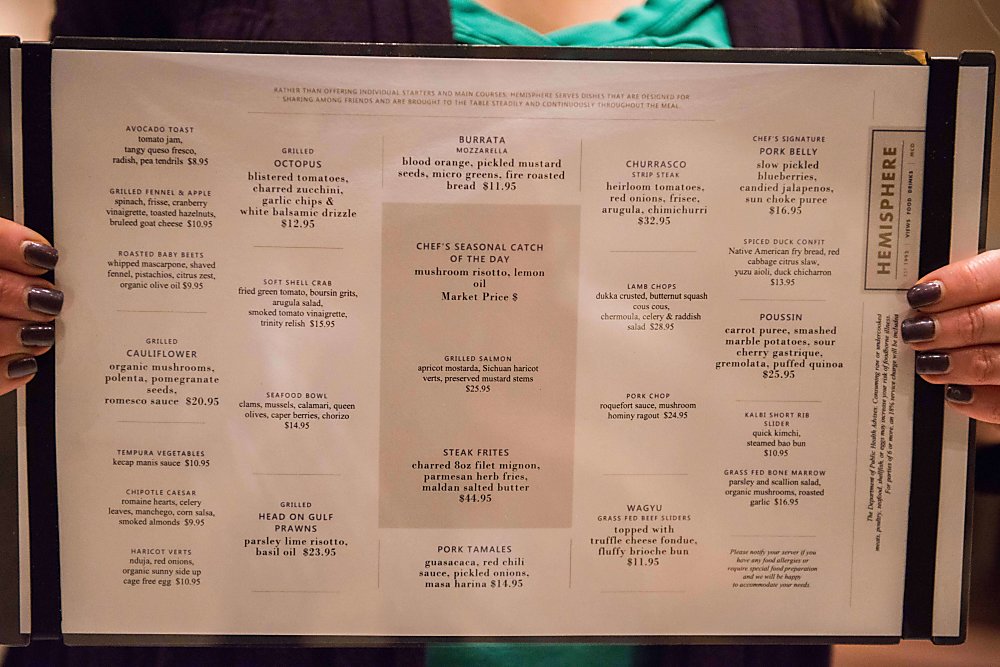 RATHER THAN OFFERING INDIVIDUAL STARTERS AND MAIN COURSES, HEMISPHERE SERVES DISHES THAT ARE DESIGNED FOR
SHARING AMONG FRIENDS AND ARE BROUGHT TO THE TABLE STEADILY AND CONTINUOUSLY THROUGHOUT THE MEAL.
AVOCADO TOAST
tomato jam,
tangy queso fresco,
radish, pea tendrils $8.95
GRILLED FENNEL & APPLE
spinach, frisse, cranberry
vinaigrette, toasted hazelnuts,
bruleed goat cheese $10.95
ROASTED BABY BEETS
whipped mascarpone, shaved
fennel, pistachios, citrus zest,
organic olive oil $9.95
GRILLED
CAULIFLOWER
organic mushrooms,
polenta, pomegranate
seeds,
romesco sauce $20.95
TEMPURA VEGETABLES
kecap manis sauce $10.95
CHIPOTLE CAESAR
romaine hearts, celery
leaves, manchego, corn salsa,
smoked almonds $9.95
HARICOT VERTS
nduja, red onions,
organic sunny side up
cage free egg $10.95
GRILLED
OCTOPUS
blistered tomatoes,
charred zucchini,
garlic chips &
white balsamic drizzle
$12.95
SOFT SHELL CRAB
fried green tomato, boursin grits,
arugula salad,
smoked tomato vinaigrette,
trinity relish $15.95
SEAFOOD BOWL
clams, mussels, calamari, queen
olives, caper berries, chorizo
$14.95
GRILLED
HEAD ON GULF
PRAWNS
parsley lime risotto,
basil oil $23.95
BURRATA
MOZZARELLA
blood orange, pickled mustard
seeds, micro greens, fire roasted
bread $11.95
CHEF'S SEASONAL CATCH
OF THE DAY
mushroom risotto, lemon
oil
Market Price $
GRILLED SALMON
apricot mostarda, Sichuan haricot
verts, preserved mustard stems
$25.95
STEAK FRITES
charred 8oz filet mignon,
parmesan herb fries,
maldan salted butter
$44.95
PORK TAMALES
guasacaca, red chili
sauce, pickled onions,
masa harina $14.95
CHURRASCO
STRIP STEAK
heirloom tomatoes,
red onions, frisee,
arugula, chimichurri
$32.95
LAMB CHOPS
dukka crusted, butternut squash
cous cous,
chermoula, celery & raddish
salad $28.95
PORK CHOP
roquefort sauce, mushroom
hominy ragout $24.95
WAGYU
GRASS FED BEEF SLIDERS
topped with
truffle cheese fondue,
fluffy brioche bun
$11.95
CHEF'S SIGNATURE
PORK BELLY
slow pickled
blueberries,
candied jalapenos,
sun choke puree
$16.95
SPICED DUCK CONFIT
Native American fry bread, red
cabbage citrus slaw,
yuzu aioli, duck chicharron
$13.95
POUSSIN
carrot puree, smashed
marble potatoes, sour
cherry gastrique,
gremolata, puffed quinoa
$25.95
KALBI SHORT RIB
SLIDER
quick kimchi,
steamed bao bun
$10.95
GRASS FED BONE MARROW
parsley and scallion salad,
organic mushrooms, roasted
garlic $16.95
Please notify your server if you
have any food allergies or
require special food preparation
and we will be happy
to accommodate your needs.
HEMISPHERE
EST 1992 VIEWS FOOD DRINKS MCO
The Department of Public Health Advises: Consuming raw or undercooked
meats, poultry, seafood, shellfish, or eggs may increase your risk of foodborne illness.
For parties of 6 or more, an 18% service charge will be included